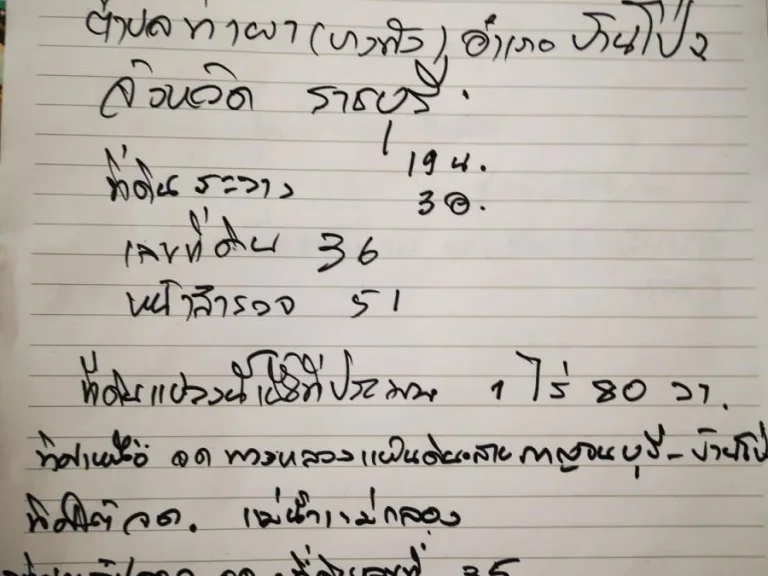 ตำบล ท่าผา ( ) อำเภอ บ้านโป่ง
จังหวัด ราชบุรี.
19 น.
ที่ดิน ระวาง 3 อ.
เลขที่ดิน 36
หน้าสำรวจ 51
ที่ดินแปลงนี้ ประมาณ 1 ไร่ 80 วา.
ทิศเหนือ จด ทางหลวงแผ่นดินสาย กาญจนบุรี - บ้านโป่
ทิศใต้ จด. แม่น้ำแม่กลอง
จด ที่ดินเลขที่ 35